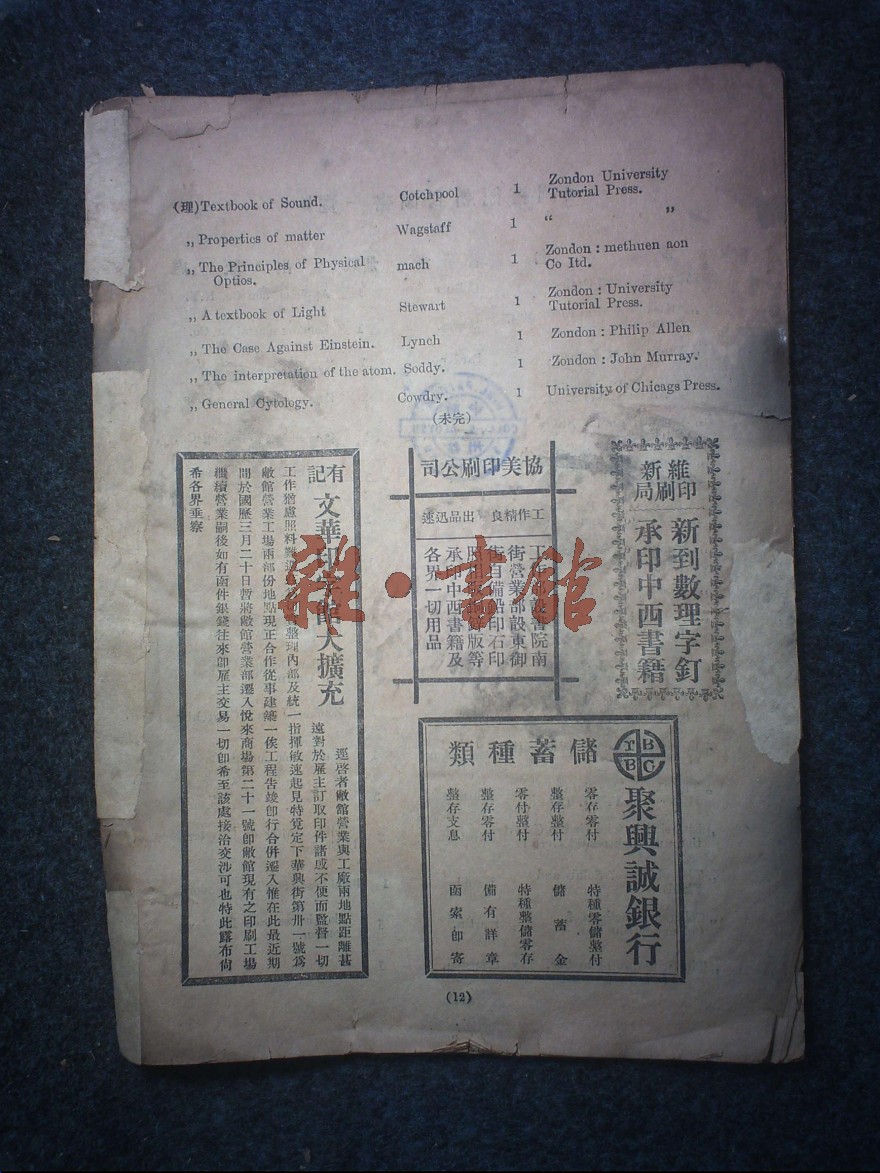 (理)Textbook of Sound. Cotchpool 1 Zondon University
Tutorial Press.
,, Propertics of matter Wagstaff 1 “ ”
,, The Principles of Physical mach 1 Zondon : methuen aon
Optios. Co ltd.
,, A textbook of Light Stewart 1 Zondon : University
Tutorial Press.
,, The Case Against Einstein. Lynch 1 Zondon : Philip Allen
,, The interpretation of the atom. Soddy. 1 Zondon : John Murray.
,, General Cytology. Cowdry. 1 University of Chicags Press.
(未完)
維新
印刷局
新到數理字釘
承印中西書籍
協美印刷公司
工作精良 出品迅速
工作部設書院南
街營業部設東御
街自備鉛印石印
版等
承印中西書籍及
各界一切用品
有記
文華印 館大擴充
逕啓者敝館營業與工廠兩地點距離甚
遠對於雇主訂取印件諸感不便而監督一切
工作猶慮照料難 整理內部及統一指揮敏速起見特覓定下華興街第卅一號爲
敝館營業工場兩部份地點現正合作從事建築一俟工程告竣卽行合併遷入惟在此最近期
間於國歷三月二十日暫將敝館營業部遷入悅來商場第二十一號卽敝館現有之印刷工場
繼續營業嗣後如有函件銀錢往來卽雇主交易一切卽希至該處接洽交涉可也特此露布尙
希各界垂察
聚興誠銀行
儲蓄種類
零存零付 特種零儲整付
整存整付 儲蓄金
零付整付 特種整儲零存
整存零付 備有詳章
整存支息 函索卽寄
(12)
雜·書館